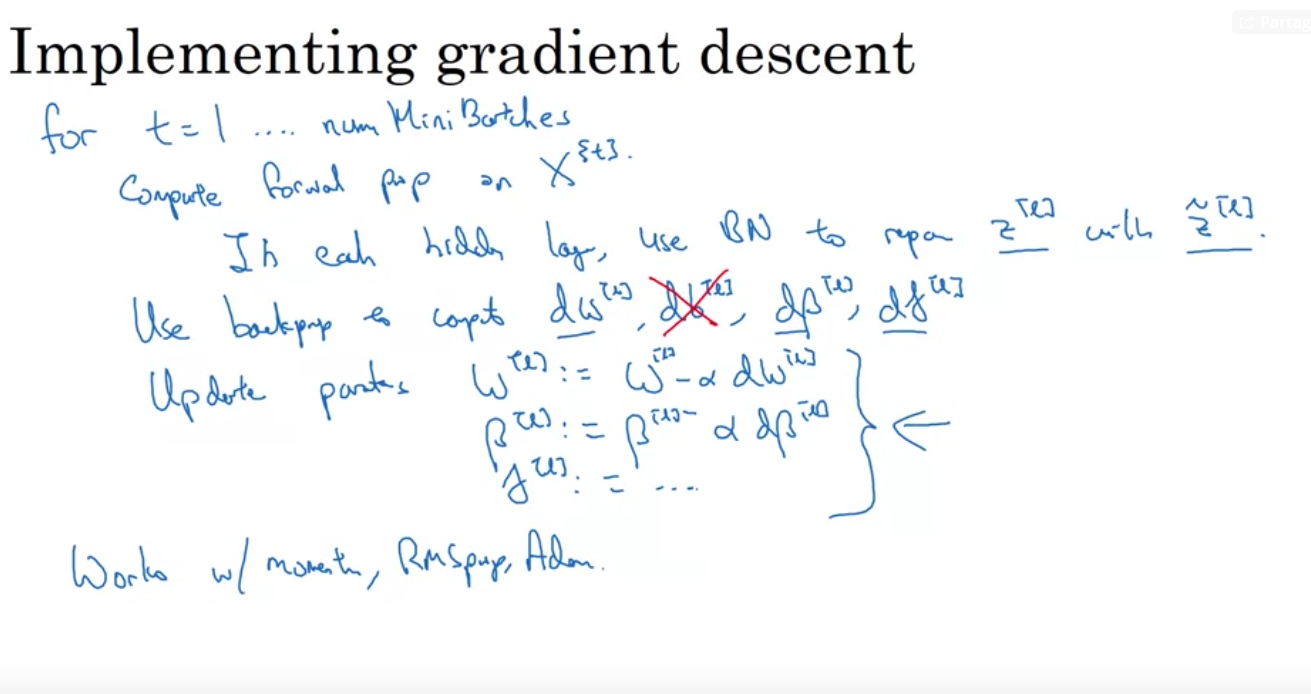 Partag
Implementing gradient descent
for t = 1 .... num Mini Batches
Compute forward prop on X^{t}.
In each hidden layer, use BN to replace z^[l] with z̃^[l].
Use backprop to compute dW^[l], db^[l], dβ^[l], dγ^[l]
Update parameters W^[l] := W^[l] - α dW^[l]
β^[l] := β^[l] - α dβ^[l]
γ^[l] := ....
Works w/ momentum, RMSprop, Adam.